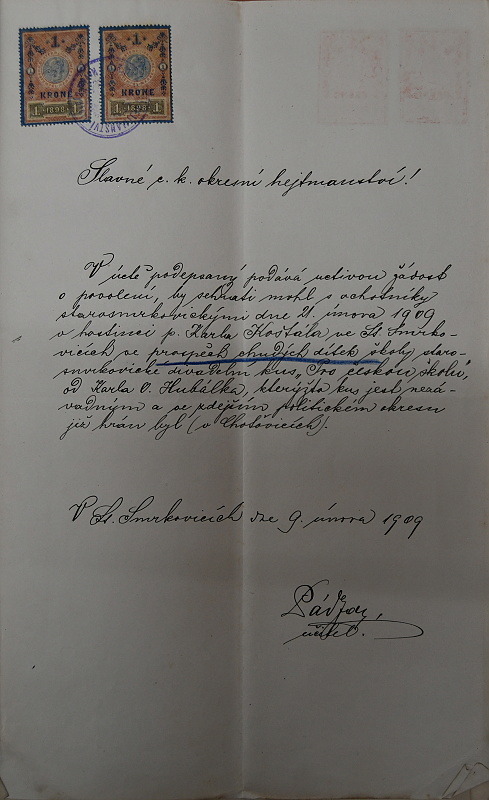 1 1
KRONE KRONE
1 1898 1 1 1898 1
Slavné c. k. okresní hejtmanství!
V úctě podepsaný podává uctivou žádost
o povolení, by sehráti mohl s ochotníky
starosmrkovickými dne 21. února 1909
v hostinci p. Karla Košťála ve St. Smrko-
vicích ve prospěch chudých dítek školy staro-
smrkovické divadelní kus „Pro českou školu"
od Karla O. Hubálka, kterýžto kus jest nezá-
vadným a ve zdejším politickém okresu
již hrán byl (v Chotovicích).
V St. Smrkovicích dne 9. února 1909
učitel.